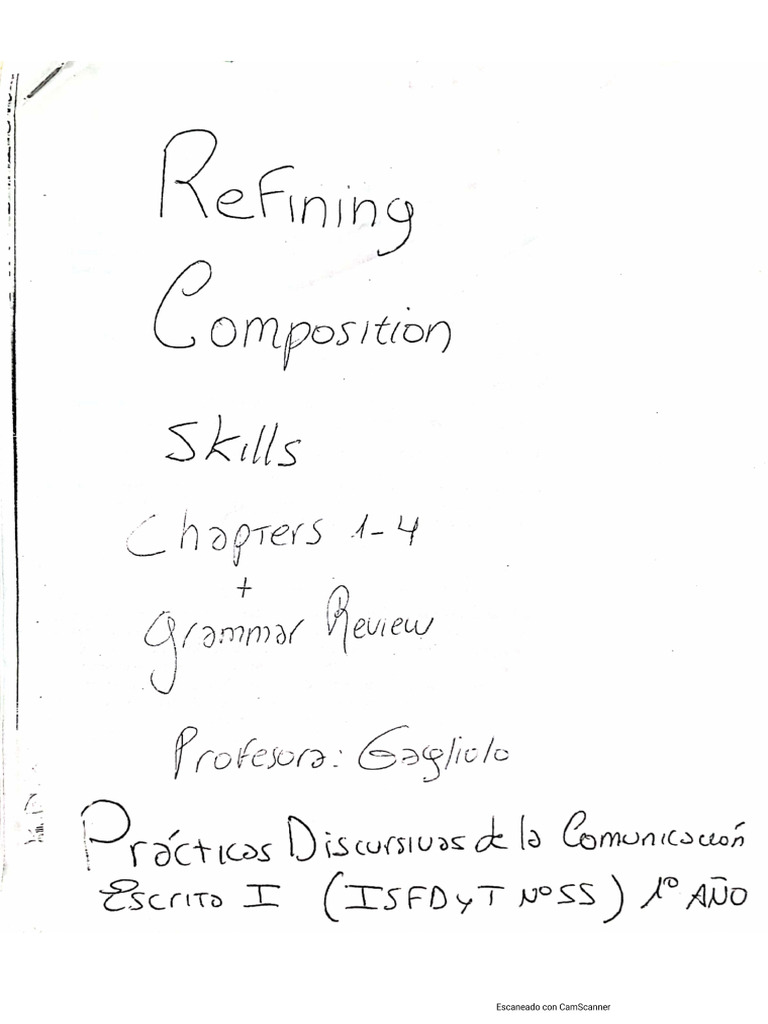 Refining
Composition
Skills
Chapters 1-4
+
Grammar Review
Profesora: Gagliolo
Prácticas Discursivas de la Comunicación
Escrita I (ISFDyT Nº 55) 1º AÑO
Escaneado con CamScanner